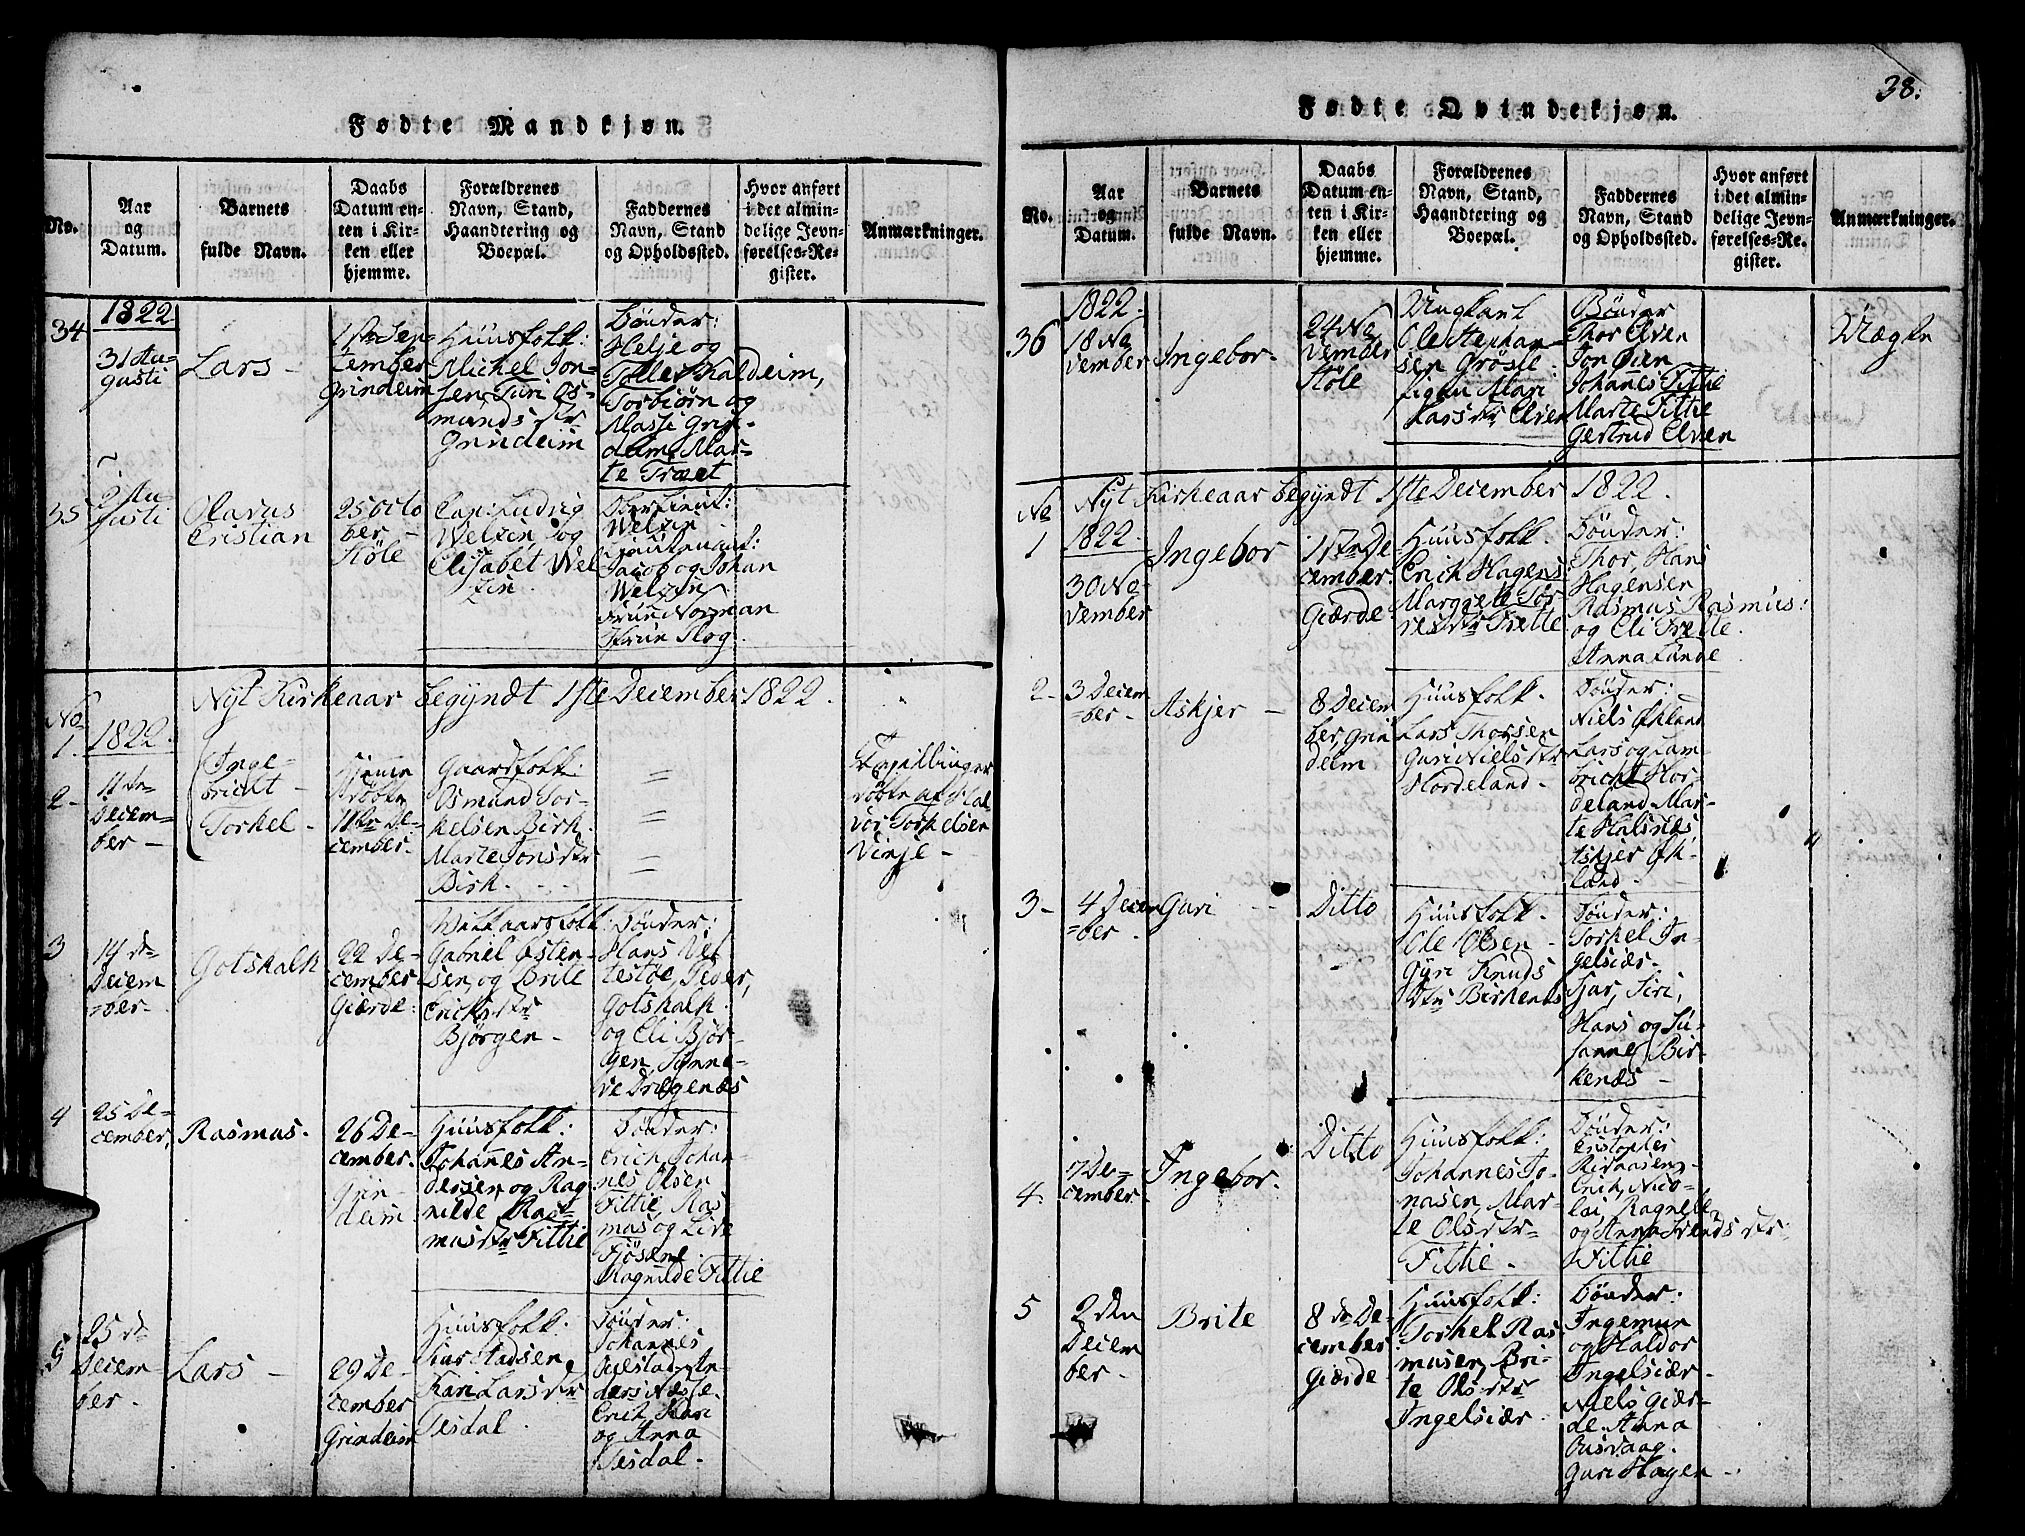 Fødte Mandkjøn.
No.
Aar
og
Datum.
Barnets
fulde Navn.
Daabs
Datum en-
ten i Kir-
ken eller
hjemme.
Forældrenes
Navn, Stand,
Haandtering og
Boepæl.
Faddernes
Navn, Stand
og Opholdssted.
Hvor anført
i det almin-
delige Jevn-
førelses-Re-
gister.
Anmærkninger.
34
1822
31 Au-
gusti
Lars -
1ste Sep-
tember
Grindeim
Huusfolk:
Michel Jon-
sen Turi Os-
munds dtr
Grindeim
Bønder:
Helje og
Skaldeim,
Torbiørn og
Massi Grin-
deim, Mar-
te Træet
35
2 Au-
gusti
Olavus
Cristian
25 Octo
ber -
Støle
Cap: Ludvig
Welzin og
Elisabet Wel
zin.
Ober Lieut:
Welzin
Jacob og Johan
Welzin
Frue Norman
Frue Skog.
Nyt Kirkeaar begyndt 1ste December 1822.
No
1.
2-
1822.
11 te
Decem-
ber -
Inge-
bricht -
Torkel -
11te De-
cember.
Gaardfolk:
Osmund Tor-
kelsen Birk.
Marte Jons dtr
Birk.
Tvillinger
døbte af Hal-
vor Torkelsen
Vinje -
3
14 de
Decem
ber -
Gotskalk
22 De-
cember
Giærde:
Gabriel Østen-
sen, og Brite
Erichs dtr
Bjørgen -
Bønder:
Hans Vet
testøe, Peder,
Gotskalk
og Eli Bjør-
gen, Sønne-
ve Drægenæs
4
25 De-
cember,
Rasmas.
26 De-
cember.
Grin-
deim
Huusfolk:
Johannes An-
dersen, og Rag
nilde Ras-
mus dtr Fittie
Bønder:
Erich, Johan-
nes Olsen
Fittie, Ras
mas og Live
Fjøsene.
Ragnilde Fittie
5
25 de
Decem-
ber -
Lars -
29 De-
cember
Grindeim
Huusfolk:
Kari Lars dtr
Tesdal.
Bønder:
Johannes
Qvestad, An-
ders Næsse.
Erich, Kari
og Anna
Tesdal -
38.
Fødte Qvindekjøn.
No.
Aar
og
Datum.
Barnets
fulde Navn.
Daabs
Datum en-
ten i Kir-
ken eller
hjemme.
Forældrenes
Navn, Stand,
Haandtering og
Boepæl.
Faddernes
Navn, Stand
og Opholdssted.
Hvor anført
i det almin-
delige Jevn-
førelses-Re-
gister.
Anmærkninger.
36
1822.
18 No
vember
Ingebor.
24 No
vember
Støle
Ungkarl
Ole Stephan-
sen Grøsle.
Pigen Mari
Lars dtr Elven
Bønder
Thor Elven
Jon Øien
Johannes Fittie
Marte Fittie
Gertrud Elven
Uægte
Nyt Kirkeaar begyndt 1ste December 1822.
No
1
1822.
30 No-
vember
Ingebor
1ste De-
cember.
Giærde
Huusfolk.
Erich Hagens:
Margrete Tor
res dtr Frette
Bønder:
Thor, Hans
Hagensen
Rasmus Rasmus:
og Eli Frette.
Anna Lunde
2-
3 Decem-
ber -
Askjer -
8 Decem
ber, Grin
deim
Huusfolk.
Lars Thorsen
Guri Niels dtr
Hordeland -
Bønder: -
Niels Økland
Lars og Lam-
bricht Hor-
deland Mar-
te Halsnæs
Askjer Øk-
land -
3-
4 Decem
ber -
Guri
Ditto
Huusfolk.
Ole Olsen -
Gyri Knuds
dtr Birkenæs
Bønder:
Torkel In-
gelsiær.
Ifar, Siri,
Hans og Su-
sanne Bir-
kenæs -
4-
7 De-
cember
Ingebor.
Ditto
Huusfolk:
Johannes Jo-
nasen, Mar-
te Ols dtr
Fittie -
Bønder:
Cristopher
Erich, Nico-
lai, Ragnelle
og Anna Svends dtr
Fittie
5
2 den
Decem
ber -
Brite
8 de De-
cember
Giærde
Huusfolk:
Torkel Ras
musen, Bri-
te Ols dtr
Ingelsiær.
Bønder:
Ingemun
og Haldor
Ingelsiær.
Niels Giær-
de, Anna
Øusvaag.
Guri Hagen -